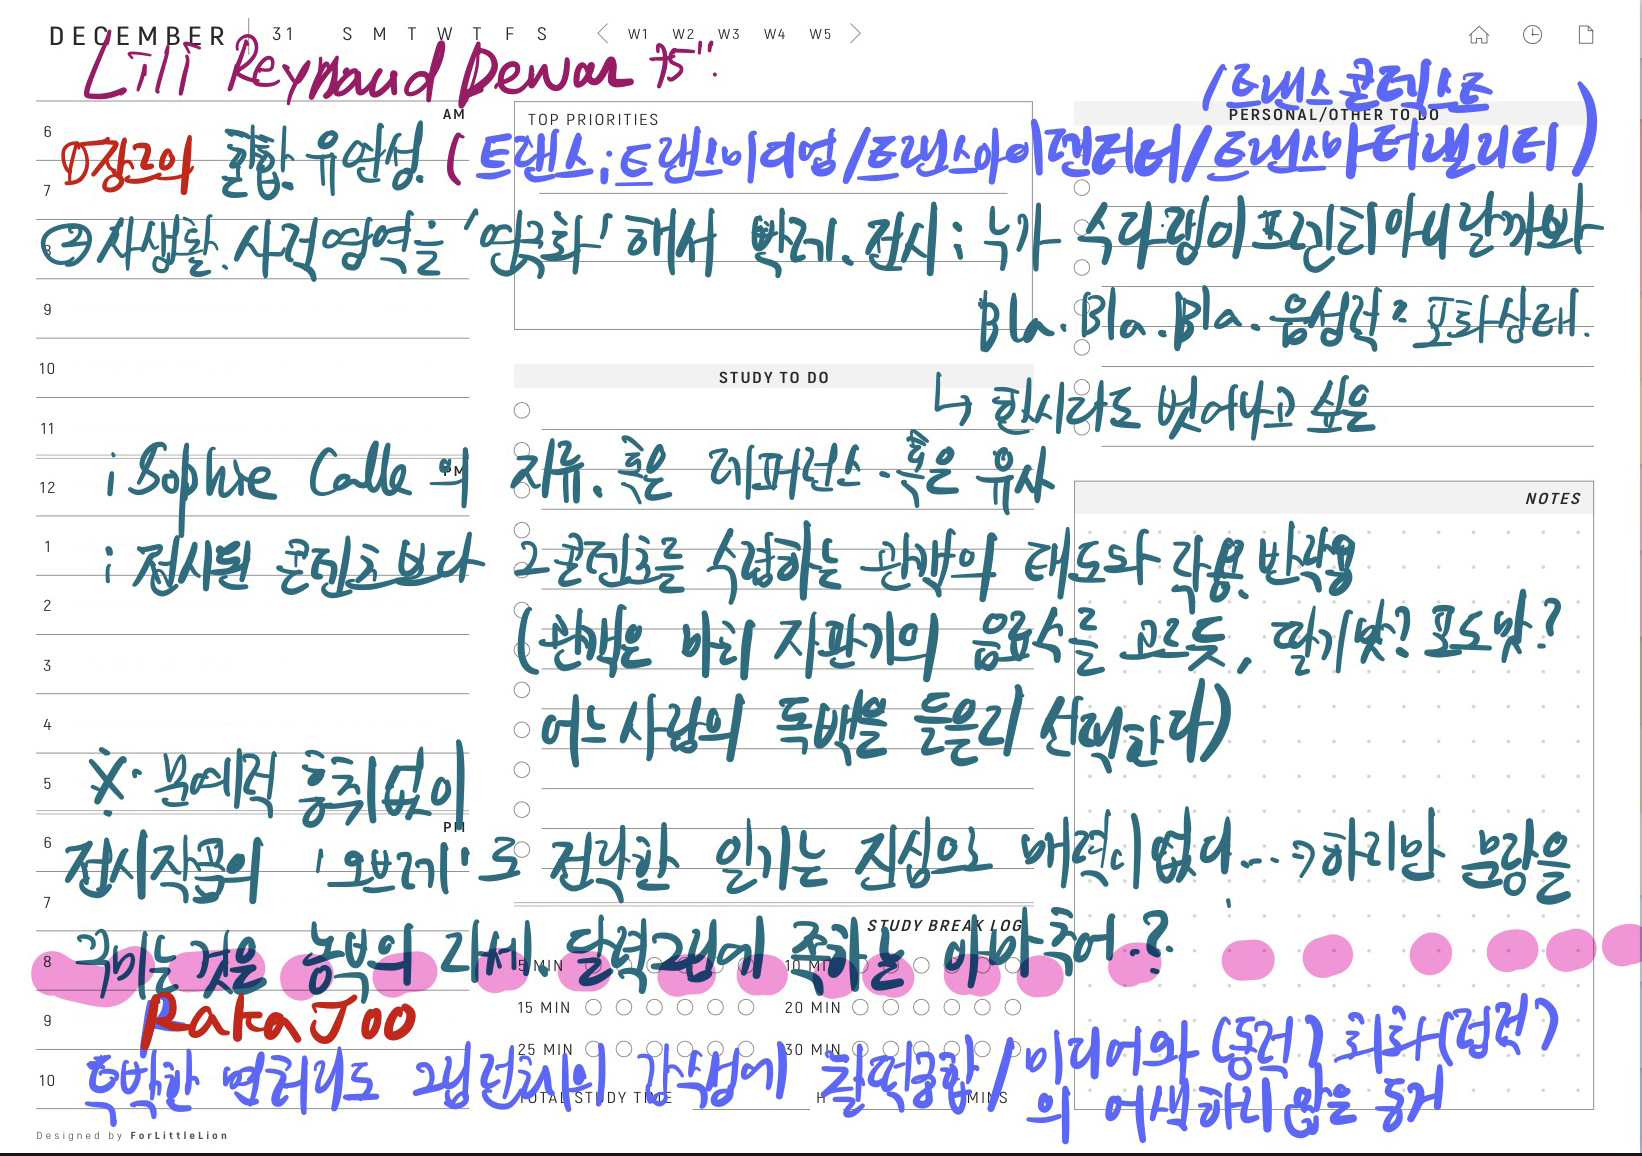 DECEMBER 31 S M T W T F S W1 W2 W3 W4 W5
Lili Reynaud Dewar 75".
/트랜스콘텍스트
AM
TOP PRIORITIES
PERSONAL/OTHER TO DO
6
①장르의 결합. 유연성. (트랜스;트랜스미디엄/트랜스아이덴터티/트랜스마터낼리티)
7
②사생활. 사적영역을 '영국화' 해서 발레. 전시; 누가 수다쟁이 프렌치 아니랄까봐
8
9
Bla. Bla. Bla. 음성력 포화상태.
10
STUDY TO DO
↳ 한시라도 벗어나고 싶은
11
PM
12
; Sophie Calle 의 자류. 혹은 레퍼런스. 혹은 유사
NOTES
1
; 전시된 콘텐츠보다 그 콘텐츠를 수렴하는 관객의 태도와 작용. 반작용
2
(관객은 마치 자판기의 음료수를 고르듯, 딸기맛? 포도맛?
3
어느 사람의 독백을 들을지 선택한다)
4
※ 문예적 흥취없이
5
PM
6
전시작품의 '오브제'로 전락한 일기는 진심으로 매력이 없다...⇒하지만 분량을
7
STUDY BREAK LOG
8
꾹미는 것은 농부의 라씨. 달력그림에 족하는 아마추어?
5 MIN 10 MIN
9
Raka Joo
15 MIN 20 MIN
25 MIN 30 MIN
10
투박한 멀러리도 그럽런치의 간식성에 찰떡궁합/미디어와 (동적) 회화(접적)
의 어색하지 않은 동거
TOTAL STUDY TIME H MINS
Designed by ForLittleLion